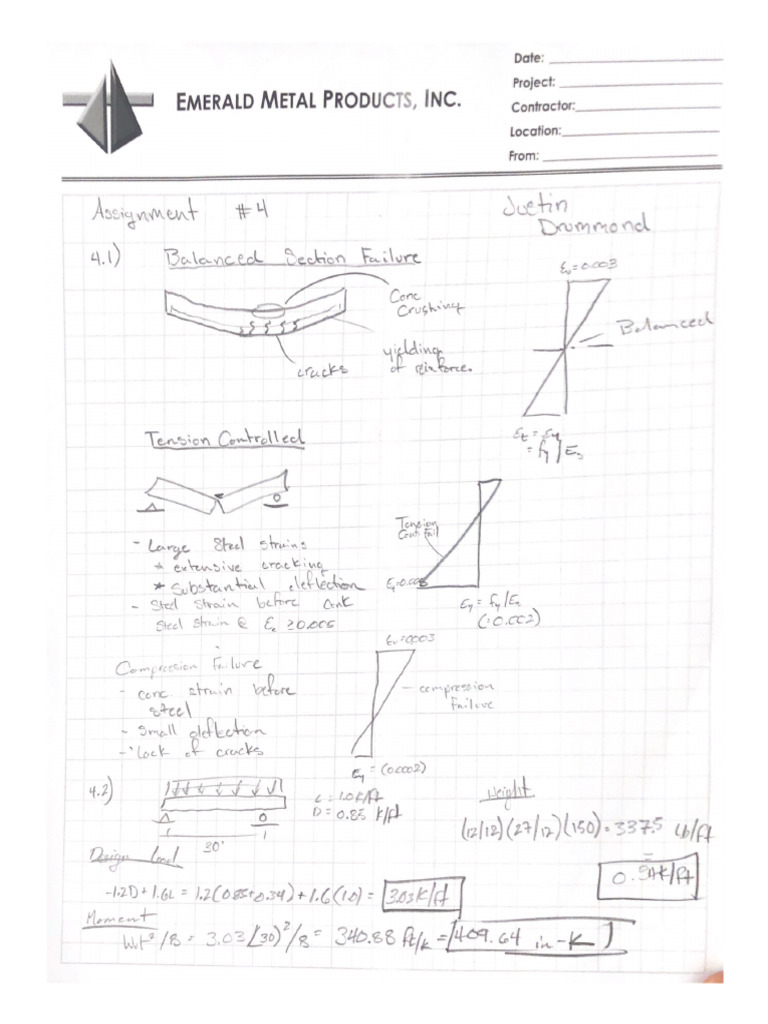 EMERALD METAL PRODUCTS, INC.
Date:
Project:
Contractor:
Location:
From:
Assignment #4
Justin
Drummond
4.1) Balanced Section Failure
Conc
Crushing
yielding
of reinforce.
cracks
εu = 0.003
Balanced
εt = εy
= fy/Es
Tension Controlled
- Large Steel strains
* extensive cracking
* substantial deflection
- Steel strain before conc
Steel strain @ εt ≥ 0.005
Tension
Cont fail
εt = 0.005
εy = fy/Es
(0.002)
Compression Failure
- conc. strain before
steel
- Small deflection
- Lack of cracks
εu = 0.003
compression
failure
εy = (0.0002)
4.2)
30'
L = 1.0 k/ft
D = 0.85 k/ft
Weight
(12/12)(27/12)(150) = 337.5 lb/ft
=
0.34 k/ft
Design Load
1.2D + 1.6L = 1.2(0.85+0.34) + 1.6(1.0) = 3.03 k/ft
Moment
WL²/8 = 3.03(30)²/8 = 340.88 ft/k = 409.64 in-k